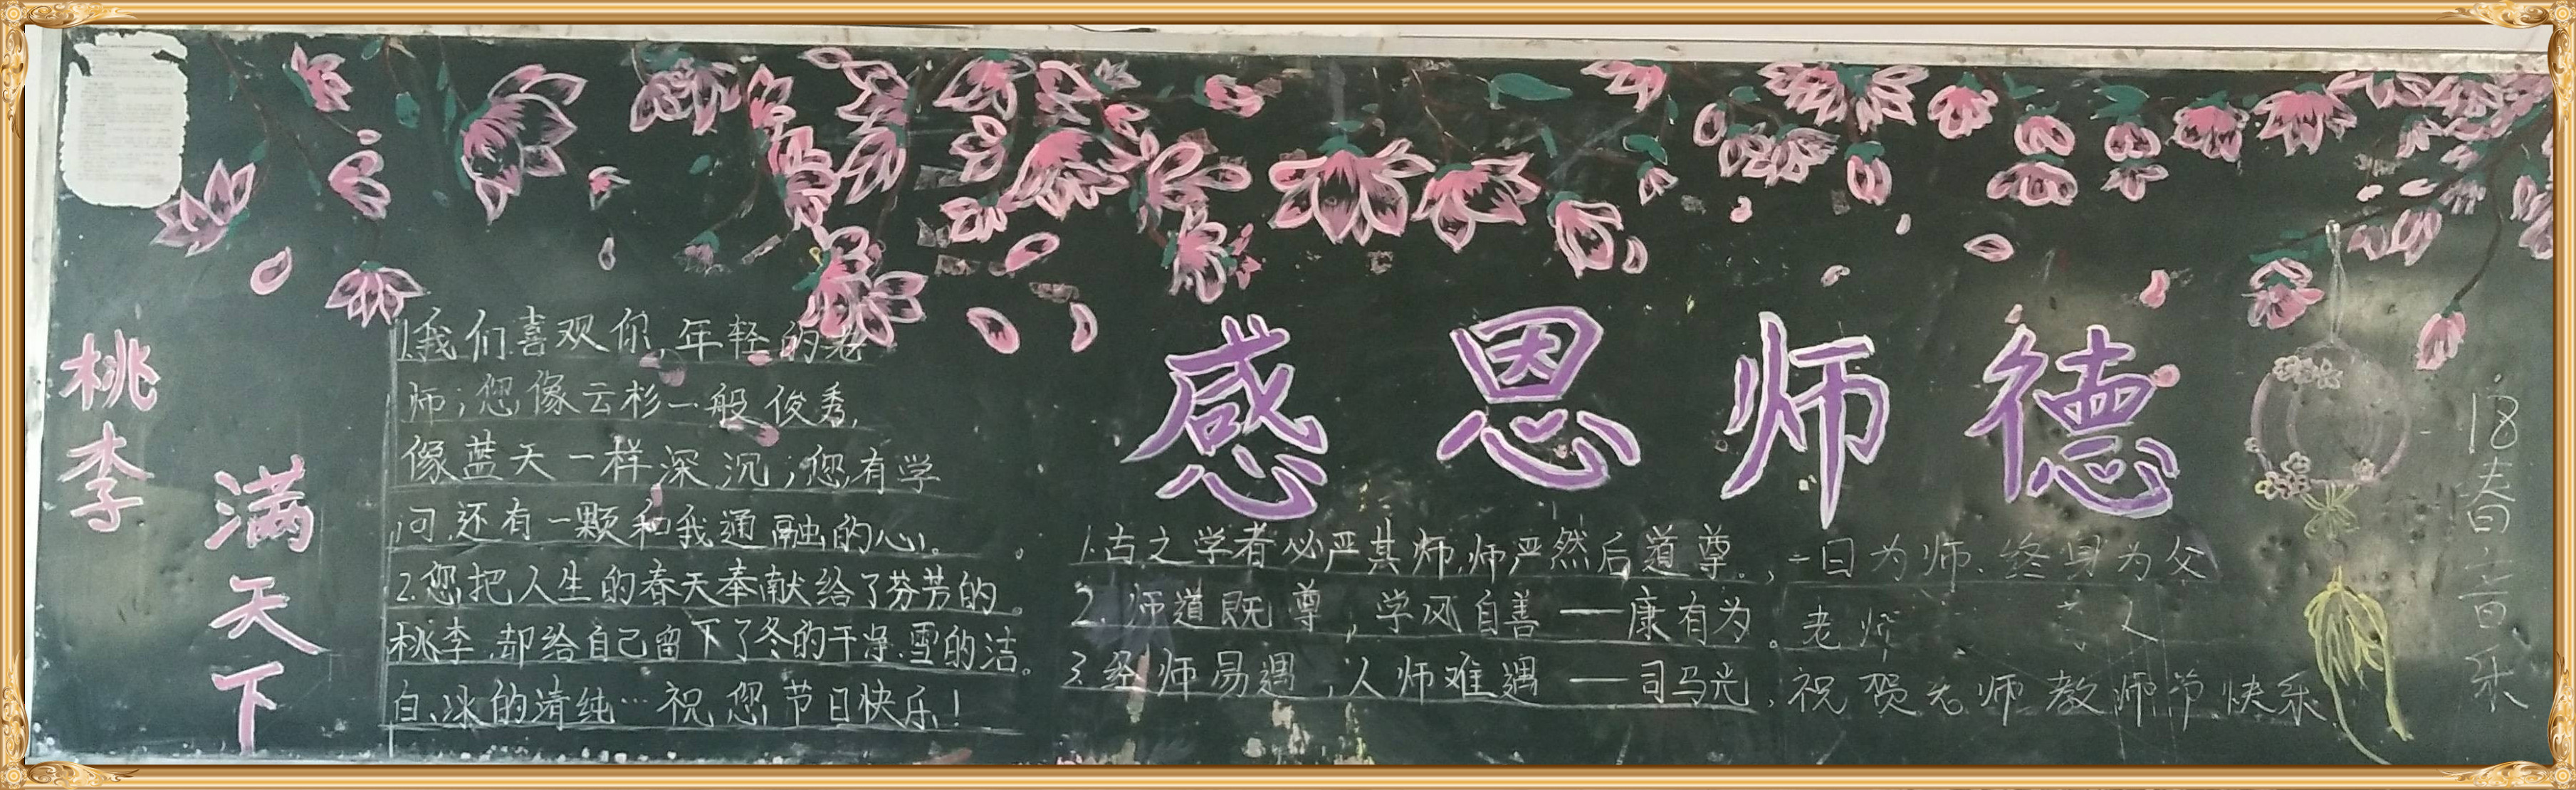 桃李
满天下
1.我们喜观你,年轻的老
师;您像云杉一般俊秀,
像蓝天一样深沉;您有学
问,还有一颗和我通融的心。
2.您把人生的春天奉献给了芬芳的
桃李,却给自己留下了冬的干净.雪的洁
白、冰的清纯…祝您节日快乐!
感恩师德
1.古之学者必严其师,师严然后道尊。
2.师道既尊,学风自善——康有为。
3.经师易遇,人师难遇——司马光,
一日为师.终身为父
老师
祝贺老师教师节快乐
18春音乐